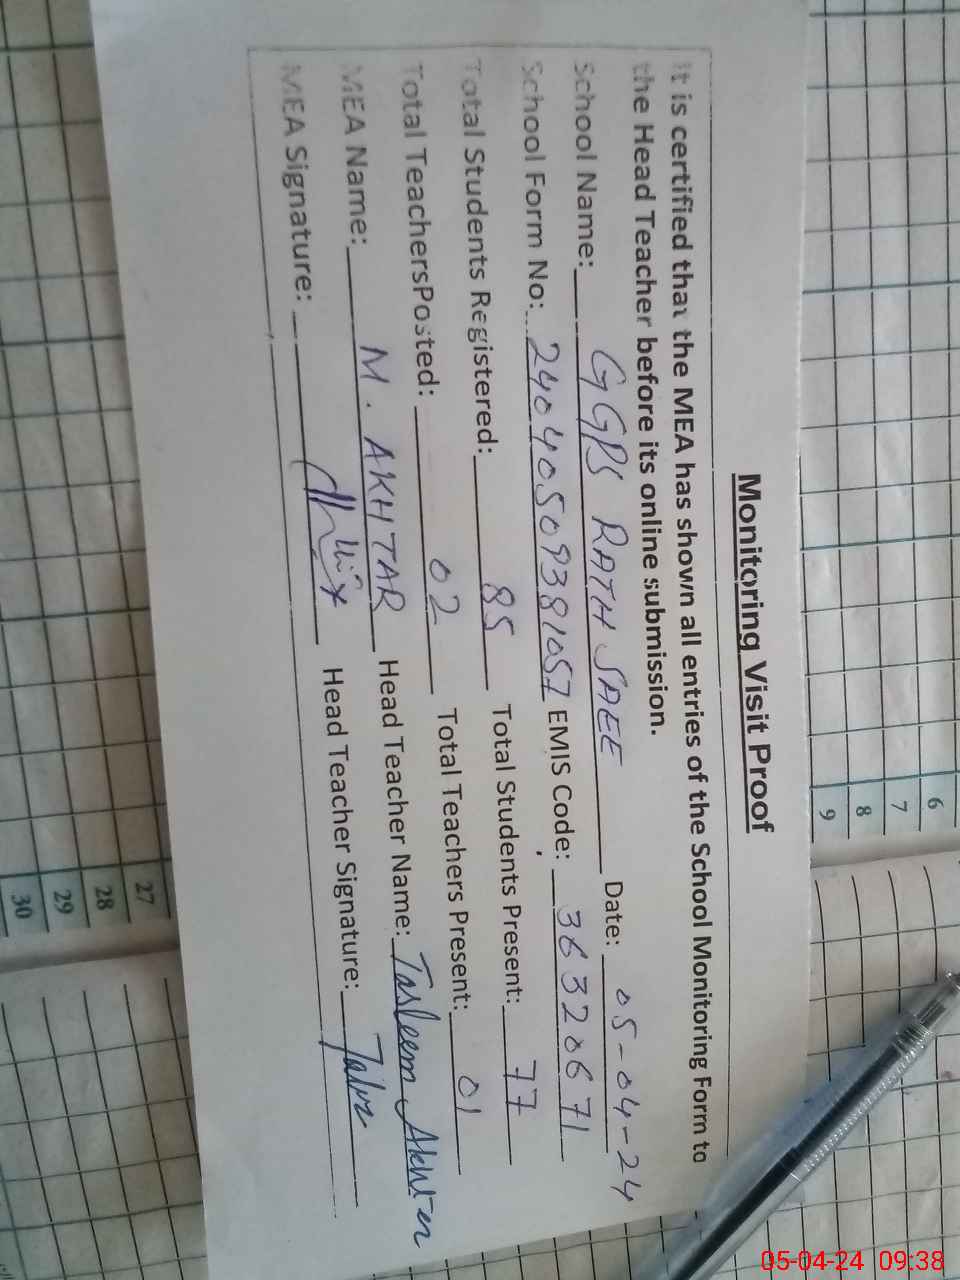 Monitoring Visit Proof
It is certified that the MEA has shown all entries of the School Monitoring Form to
the Head Teacher before its online submission.
School Name: GGPS RATH SAEE Date: 05-04-24
School Form No: 24040509381057 EMIS Code: 36320671
Total Students Registered: 85 Total Students Present: 77
Total TeachersPosted: 02 Total Teachers Present: 01
MEA Name: M. AKHTAR Head Teacher Name: Tasleem Akhter
MEA Signature: Head Teacher Signature:
6
7
8
9
27
28
29
30
05-04-24 09:38